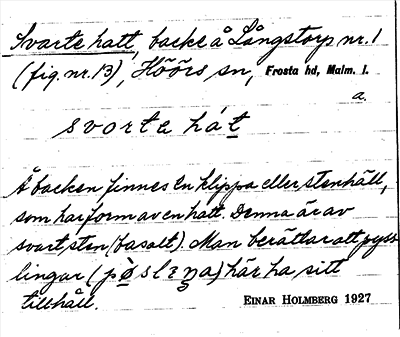 Svarte hatt, backe å Långstorp nr. 1
(fig. nr. 13), Höörs sn, Frosta hd, Malm. l.
a.
svorte hát
Å backen finnes en klippa eller stenhäll,
som har form av en hatt. Denna är av
svart sten (basalt). Man berättar att pyss-
lingar (pøslɛŋa) här ha sitt
tillhåll.
EINAR HOLMBERG 1927